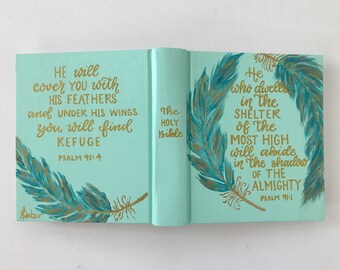 HE will
cover you with
HIS FEATHERS
and UNDER HIS WINGS
you will find
REFUGE
PSALM 91:4
The
HOLY
Bible
He
who dwells
in the
SHELTER
of the
MOST HIGH
will abide
in the shadow
OF THE
ALMIGHTY
PSALM 91:1